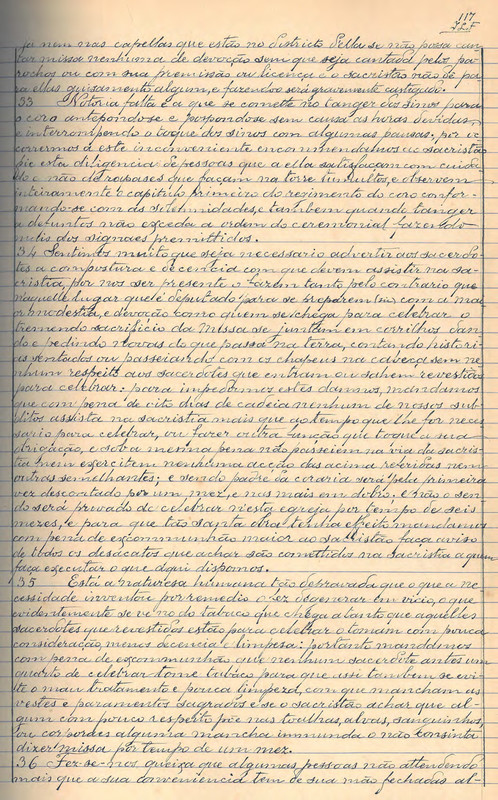 117
J.L.F
ja nem nas capellas que estão no districto della se não possa can-
tar missa nenhuma de devoção sem que seja cantada pelos pa-
rochos ou com sua premissão ou licença e o sacristão não dê pa-
ra ellas guisamento algum, e fazendo-o será gravemente castigado.
33 Notoria falta é a que se comette no tanger dos sinos para
o coro antepondo-se e pospondo-se sem causa as horas devidas,
e interrompendo o toque dos sinos com algumas pausas; por oc-
corrermos a este inconveniente encommendamos ao sacristão
 esta diligencia de pessoas que a ella satisfaçam com cuida-
do e não de rapases que façam na torre tumultos, e observem
inteiramente o capitulo primeiro do regimento do coro confor-
mando-se com as solemnidades, e tambem quando tanger
a defuntos não exceda a ordem do ceremonial fazendo
mais dos signaes premittidos.
34 Sentimos muito que seja necessario advertir aos sacerdo-
tes a compostura e decencia com que devem assistir na sa-
cristia, por nos ser presente o farem tanto pelo contrario que
naquelle lugar que lei deputado para se preparem (sic) com a ma-
ior modestia, e devoção como quem se chega para celebrar o
tremendo sacrificio da Missa se juntam em corrilhos dan-
do e pedindo novas do que passa na terra, contando histori-
as sentados ou passeiando com os chapeus na cabeça sem ne-
nhum respeito aos sacerdotes que entram ou sahem revestidos
para celebrar: para impedirmos estes damnos, mandamos
que com pena de oito dias de cadeia nenhum de nossos sub-
ditos assista na sacristia mais que ao tempo que lhe for neces-
sario para celebrar, ou fazer outra funcção que toque a sua
obrigação, e sob a mesma pena não passeiem na via da sacris-
tia nem exercitem nenhuma acção das acima referidas nem
outras semelhantes; e sendo padre da coraria será pela primeira
vez descontado por um mez, e nas mais em dobro, e não o sen-
do será privado de celebrar nesta egreja por tempo de seis
mezes, e para que tão santa obra tenha effeito mandamos
com pena de excommunhão maior ao sacristão faça aviso
de todos os desacatos que achar são comettidos na sacristia a quem
faça executar o que aqui dispomos.
35 Está a naturesa humana tão depravada que o que a ne-
cessidade inventou por remedio o fez degenerar em vicio, o que
evidentemente se vê no do tabaco que chega a tanto que aquelles
sacerdotes que revestidos estão para celebrar o tomam com pouca
consideração, menos decencia e limpesa: portanto mandamos
com pena de excommunhão que nenhum sacerdote antes um
quarto de celebrar tome tabaco para que assi tambem se evi-
te o mau tratamento e pouca limpeza, com que mancham as
vestes e paramentos sagrados e se o sacristão achar que al-
gum com pouco respeito põe nas toalhas, alvas, sanguinhos,
ou corporaes alguma mancha immunda o não consinta
dizer missa por tempo de um mez.
36 Fez-se-nos queixa que algumas pessoas não attendendo
mais que a sua conveniencia tem de sua mão fechadas al-